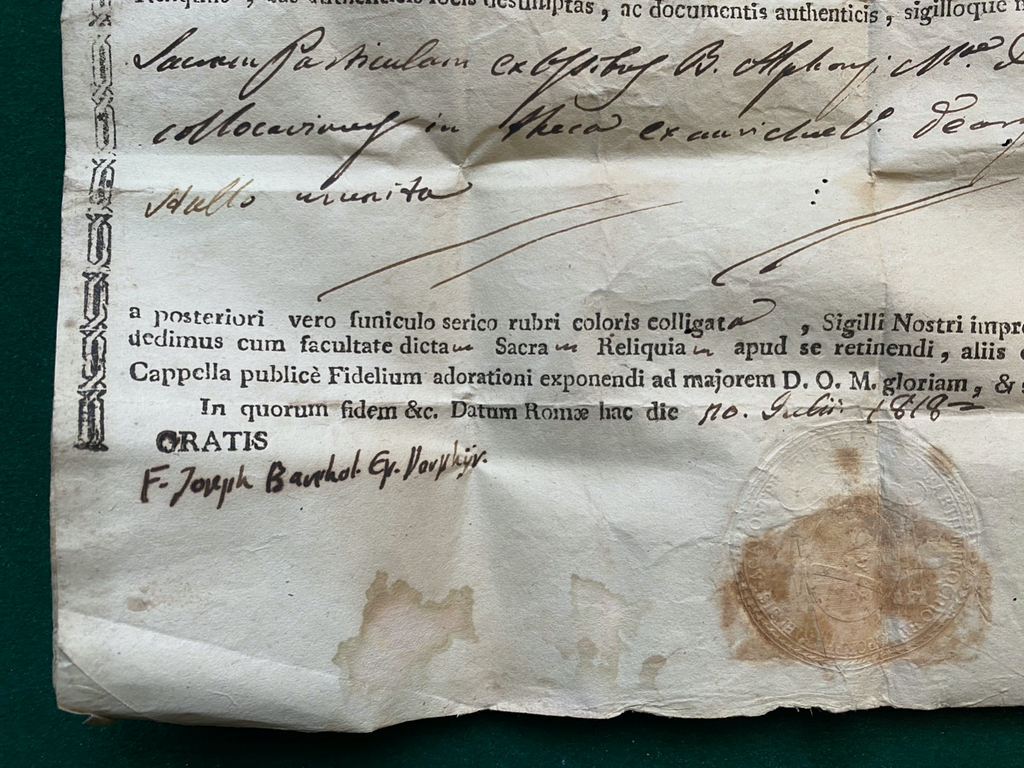 Reliquiis, has authenticis locis desumptas, ac documentis authenticis, sigilloque
Sacram Particulam ex Ossibus B. Alphonsi Mae
collocavimus in theca ex aurichal.
munita
a posteriori vero funiculo serico rubri coloris colligata, Sigilli Nostri
dedimus cum facultate dictam Sacram Reliquiam apud se retinendi, aliis
Cappella publicè Fidelium adorationi exponendi ad majorem D. O. M. gloriam, &
In quorum fidem &c. Datum Romæ hac die 10. Julii 1818
GRATIS
F. Joseph Barthol. Ep. Porphyr.